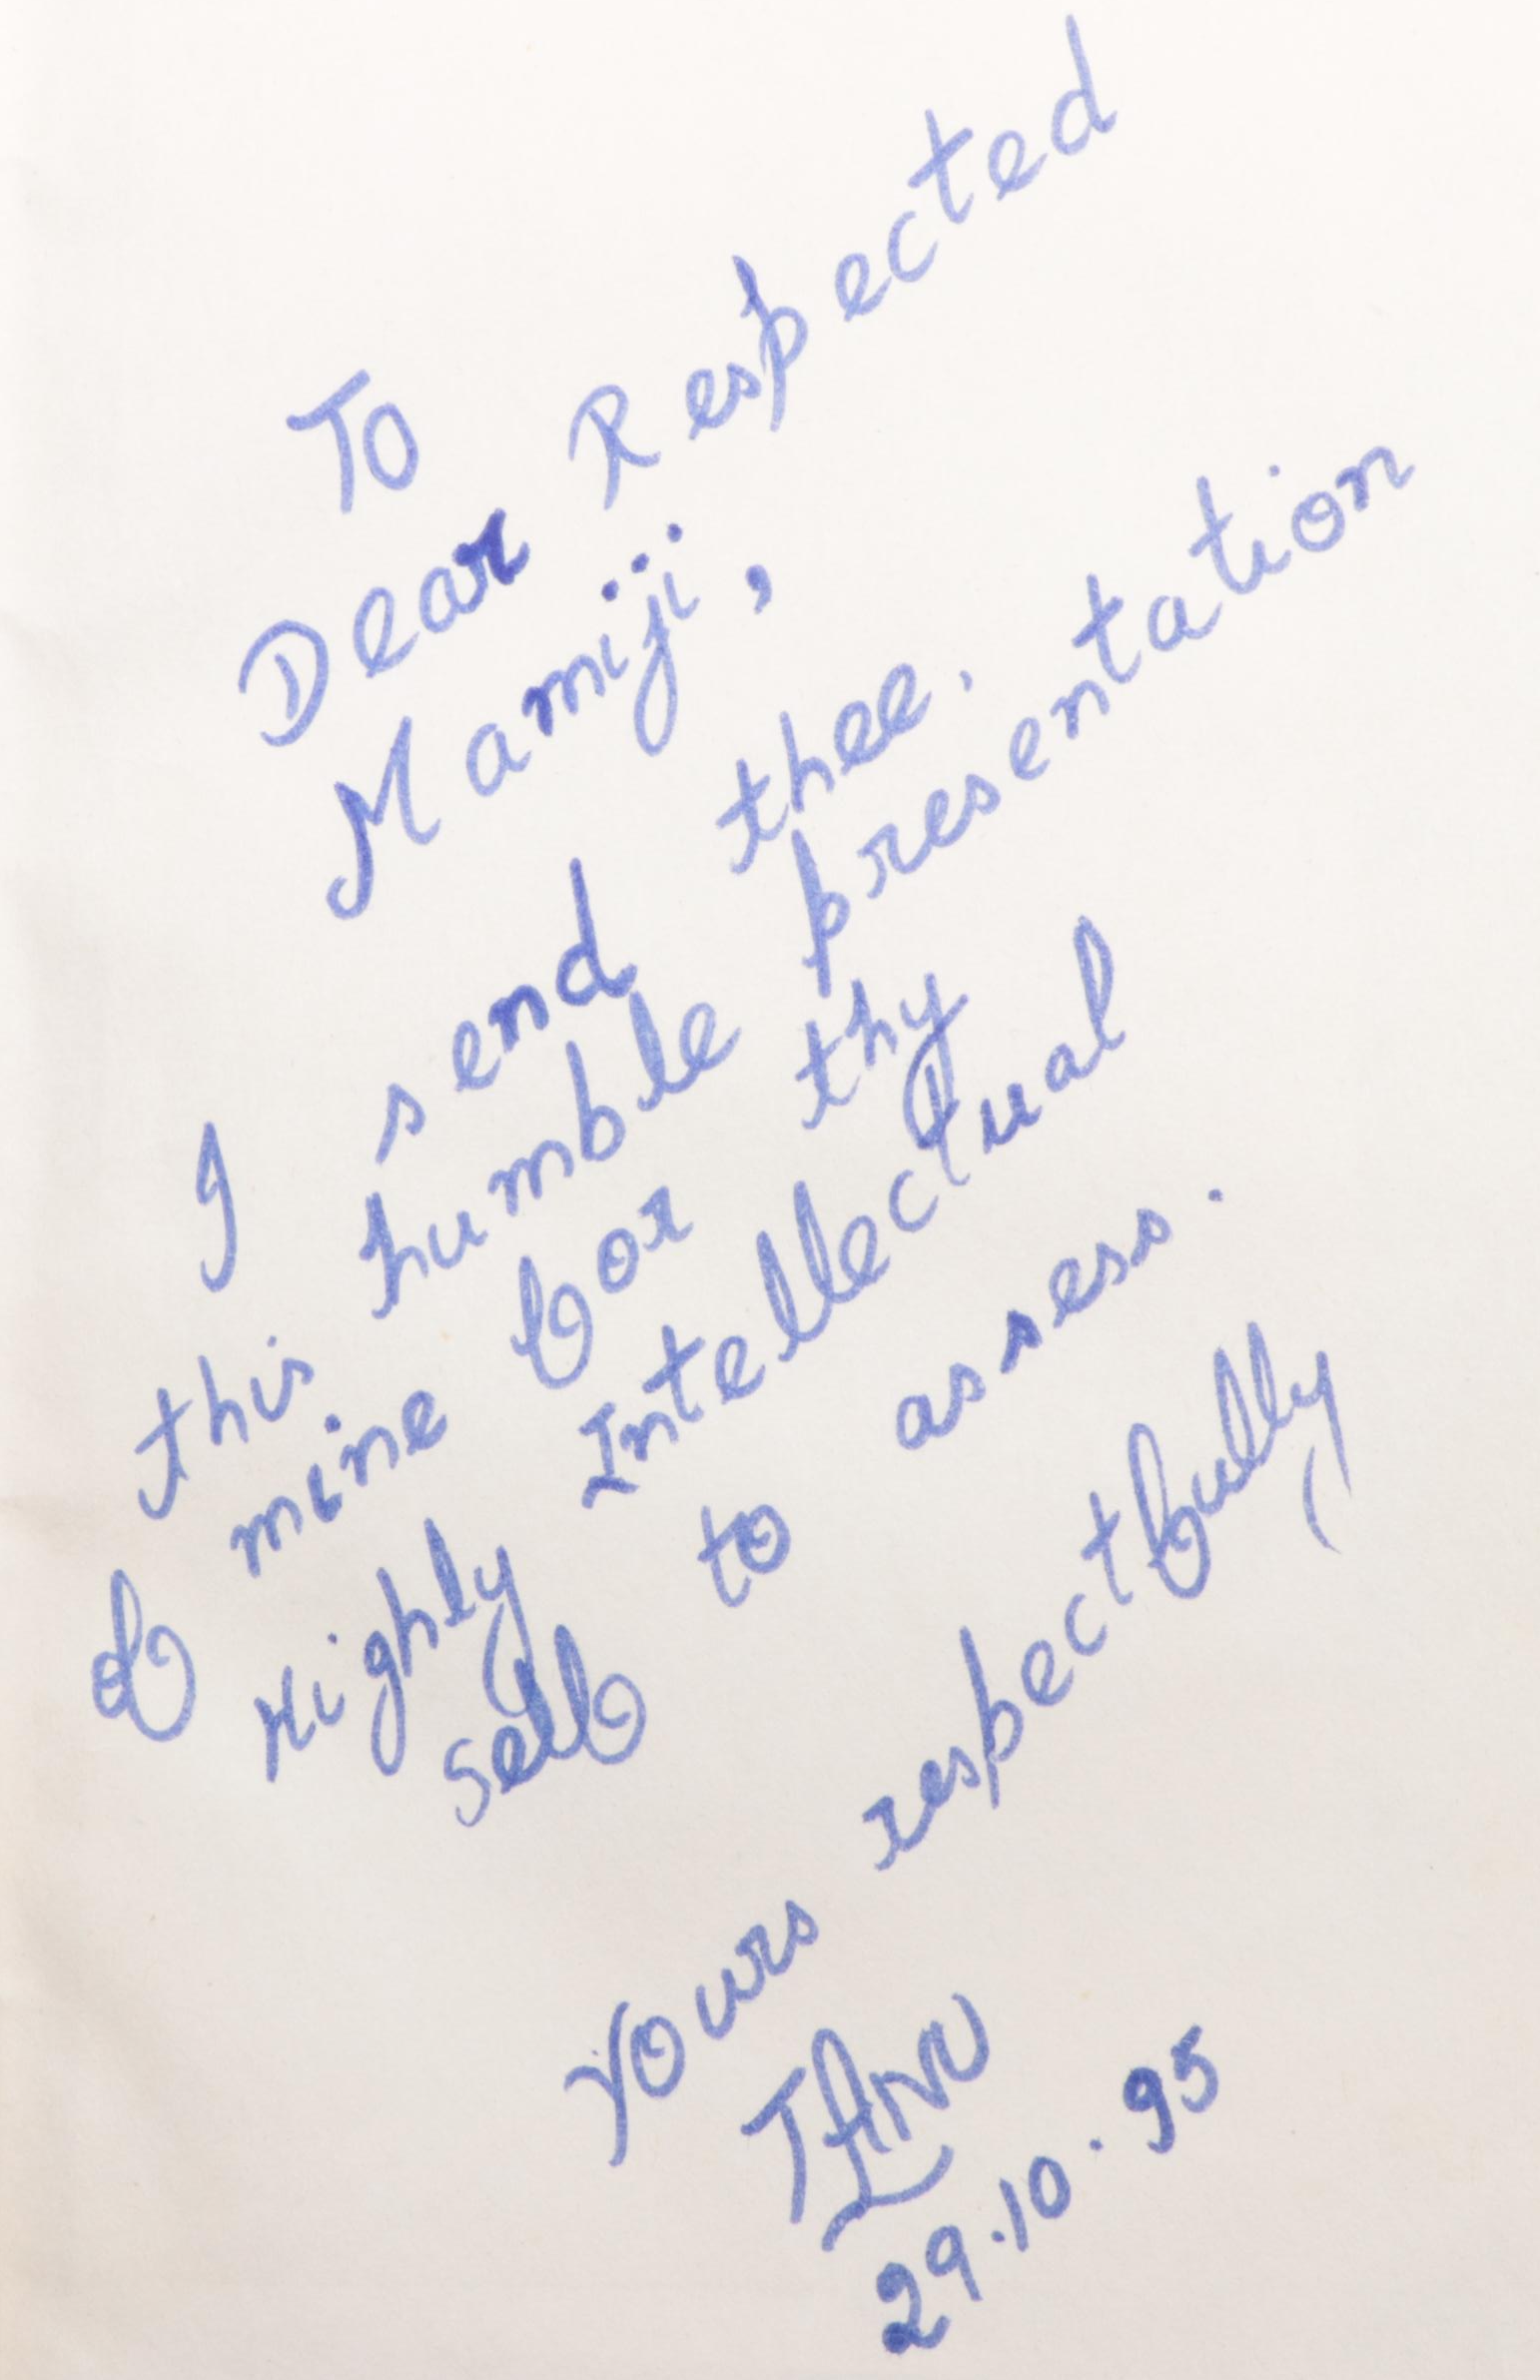 To
Dear Respected
Mamiji,
I send thee.
this humble presentation
of mine for thy
Highly Intellectual
self to assess.
Yours respectfully
29.10.95